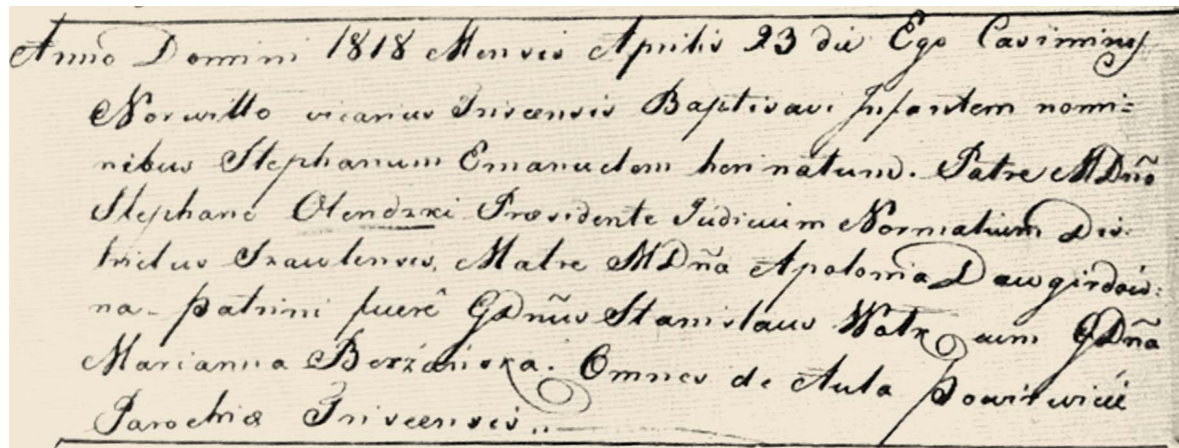 Anno Domini 1818 Mensis Aprilis 23 die Ego Casimirus
Norwiłło vicarius Baptisavi Infantem nomi=
nibus Stephanum Emanuelem heri natum. Patre MDño
Stephano Olendzki Præsidente Judicium Dis:
trictus Szawlensis, Matre MDña Apolonia Dawgirdów:
na - patrini fuerê GDñus Stanislaus cum GDña
Marianna Berżańska. Omnes de Aula
Parochiæ